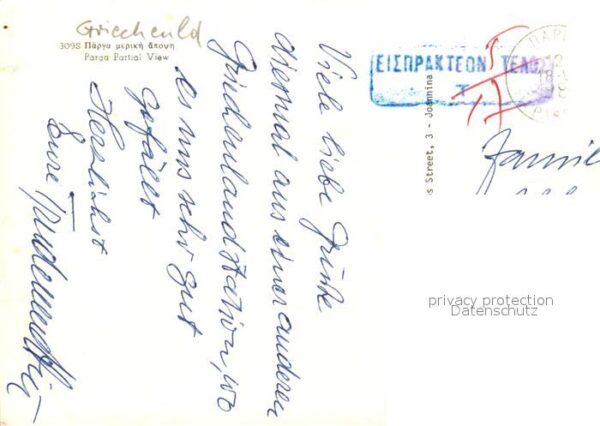 Griechenld
3098 Πάργα μερική ἄποψη
Parga Partial View
Viele liebe Grüße
diesmal aus einer anderen
Griechenlandstation, wo
es uns sehr gut
gefällt
Herzlichst
Eure
ΕΙΣΠΡΑΚΤΕΟΝ ΤΕΛΟΣ
T
ΠΑΡΓ
s Street, 3 - Joannina
Famil
privacy protection
Datenschutz